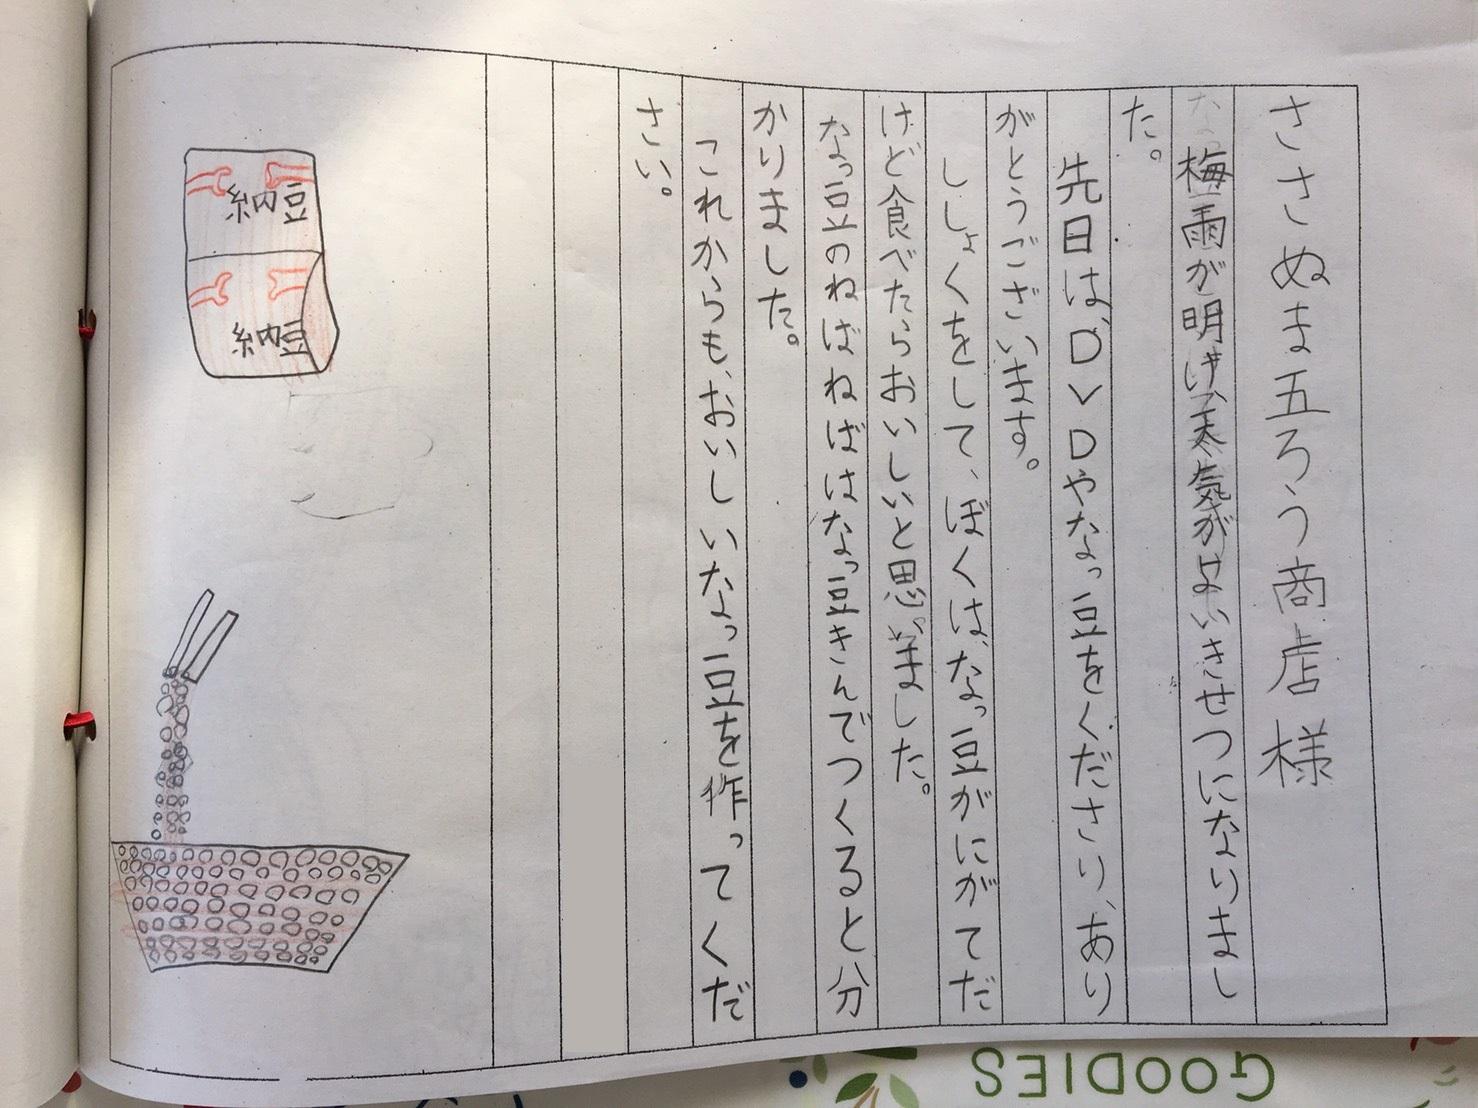 ささぬま五ろう商店様
梅雨が明け、天気がよいきせつになりまし
た。
先日は、DVDやなっ豆をくださり、あり
がとうございます。
ししょくをして、ぼくは、なっ豆がにがてだ
けど食べたらおいしいと思いました。
なっ豆のねばねばはなっ豆きんでつくると分
かりました。
これからも、おいしいなっ豆を作ってくだ
さい。
納豆
納豆
GOODIES